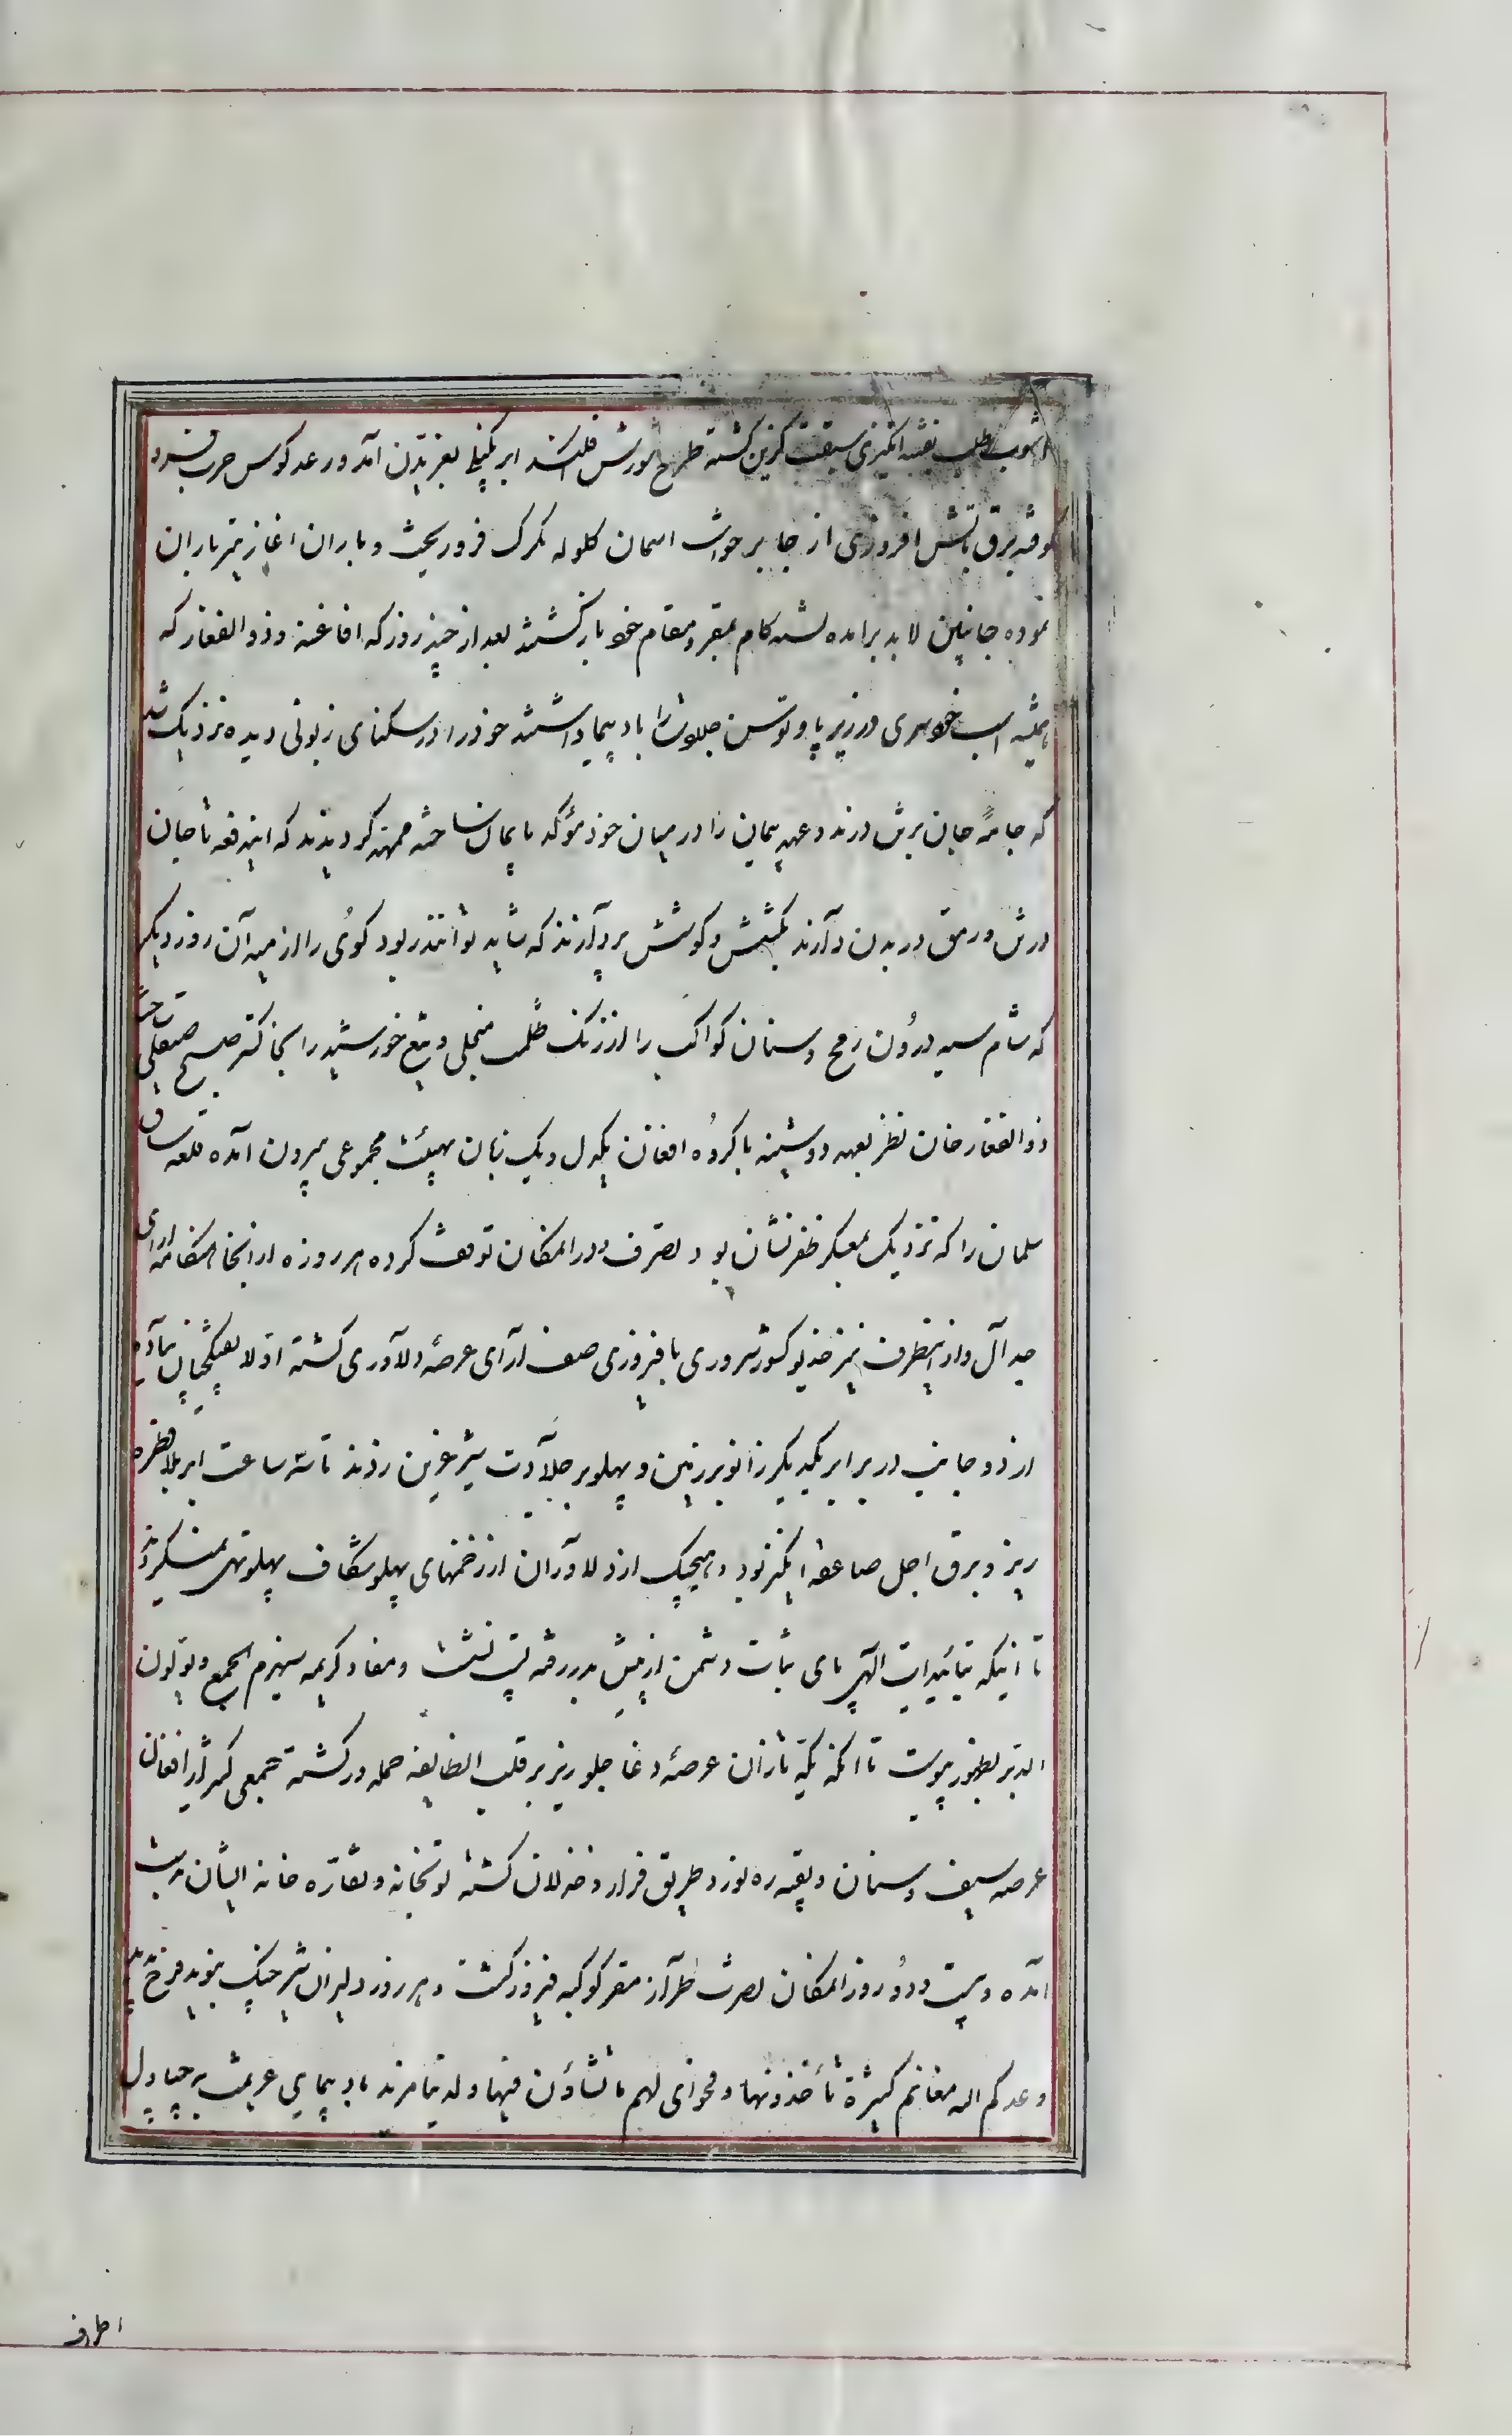 آشوب طلب بفتنه انگیزی سبقت گزین گشته طرح یورش افکند ابر بغریدن آمد و رعد کوس حرب
کوفته برق باتش افروزی از جا برخواست اسمان کلوله تکرک فرو ریخت و باران اغاز تیر باران
نموده جانبین لابد برامده تشنه کام بمقر و مقام خود بازگشتند بعد از چند روز که افاغنه و ذوالفقار که
همیشه اسب خودسری در زیر پا و توسن جلادت را باد پیما داشتند خود را در تنکنای زبونی دیده نزدیک شد
که جامهٔ جان برتن درند و عهد پیمان را در میان خود مؤکد بایمان ساخته ممهد کردیدند که ایندفعه تا جان
در تن و رمق در بدن دارند بکشش و کوشش پردازند که شاید توانند ربود کوی را از میدان روز دیکر
که شام سیه درون رمح و سنان کواکب را از زنک ظلمت منجلی و تیغ خورشید را بخاکستر صبح صیقلی ساخت
ذوالفقار خان نظر بعهد دوشینه با کروه افغان یکدل و یک زبان بهیئت مجموعی بیرون آمده قلعه ساق
سلمان را که نزدیک بمعسکر ظفرنشان بود تصرف و در المکان توقف کرده هر روزه از انجا هنکامه ارای
جدال و از اینطرف نیز خدیو کشور سروری با فیروزی صف ارای عرصهٔ دلاوری گشته اولا تفنکچیان پیاده
از دو جانب در برابر یکدیکر زانو بر زمین و پهلو بر جلادت شیر عرین زدند تا سه ساعت ابر بلا قطره
ریز و برق اجل صاعقه انکیز بود و هیچیک از دلاوران از زخمهای پهلو شکاف پهلو تهی نمیکردند
تا اینکه بتائیدات الهی پای ثبات دشمن از پیش بدر رفته پس نشست و مفاد کریمه سیهزم الجمع و یولون
الدبر بظهور پیوست تا انکه یکه تازان عرصهٔ وغا جلوریز بر قلب انطایفه حمله ور گشته جمعی کثیر از افغان
عرصه سیف و سنان و بقیه ره نورد طریق فرار و خذلان گشته توپخانه و نقاره خانه ایشان بدست
آمده و بیست و دو روز المکان نصرت طراز مقر کوکبه فیروز گشت و هر روز دلیران شیر جنک بنوید فرح
وعدکم الله مغانم کثیرة تأخذونها و فحوای لهم ما تشاؤن فیها و لدینا مزید باد پیمای عزیمت به چپاول
اطراف